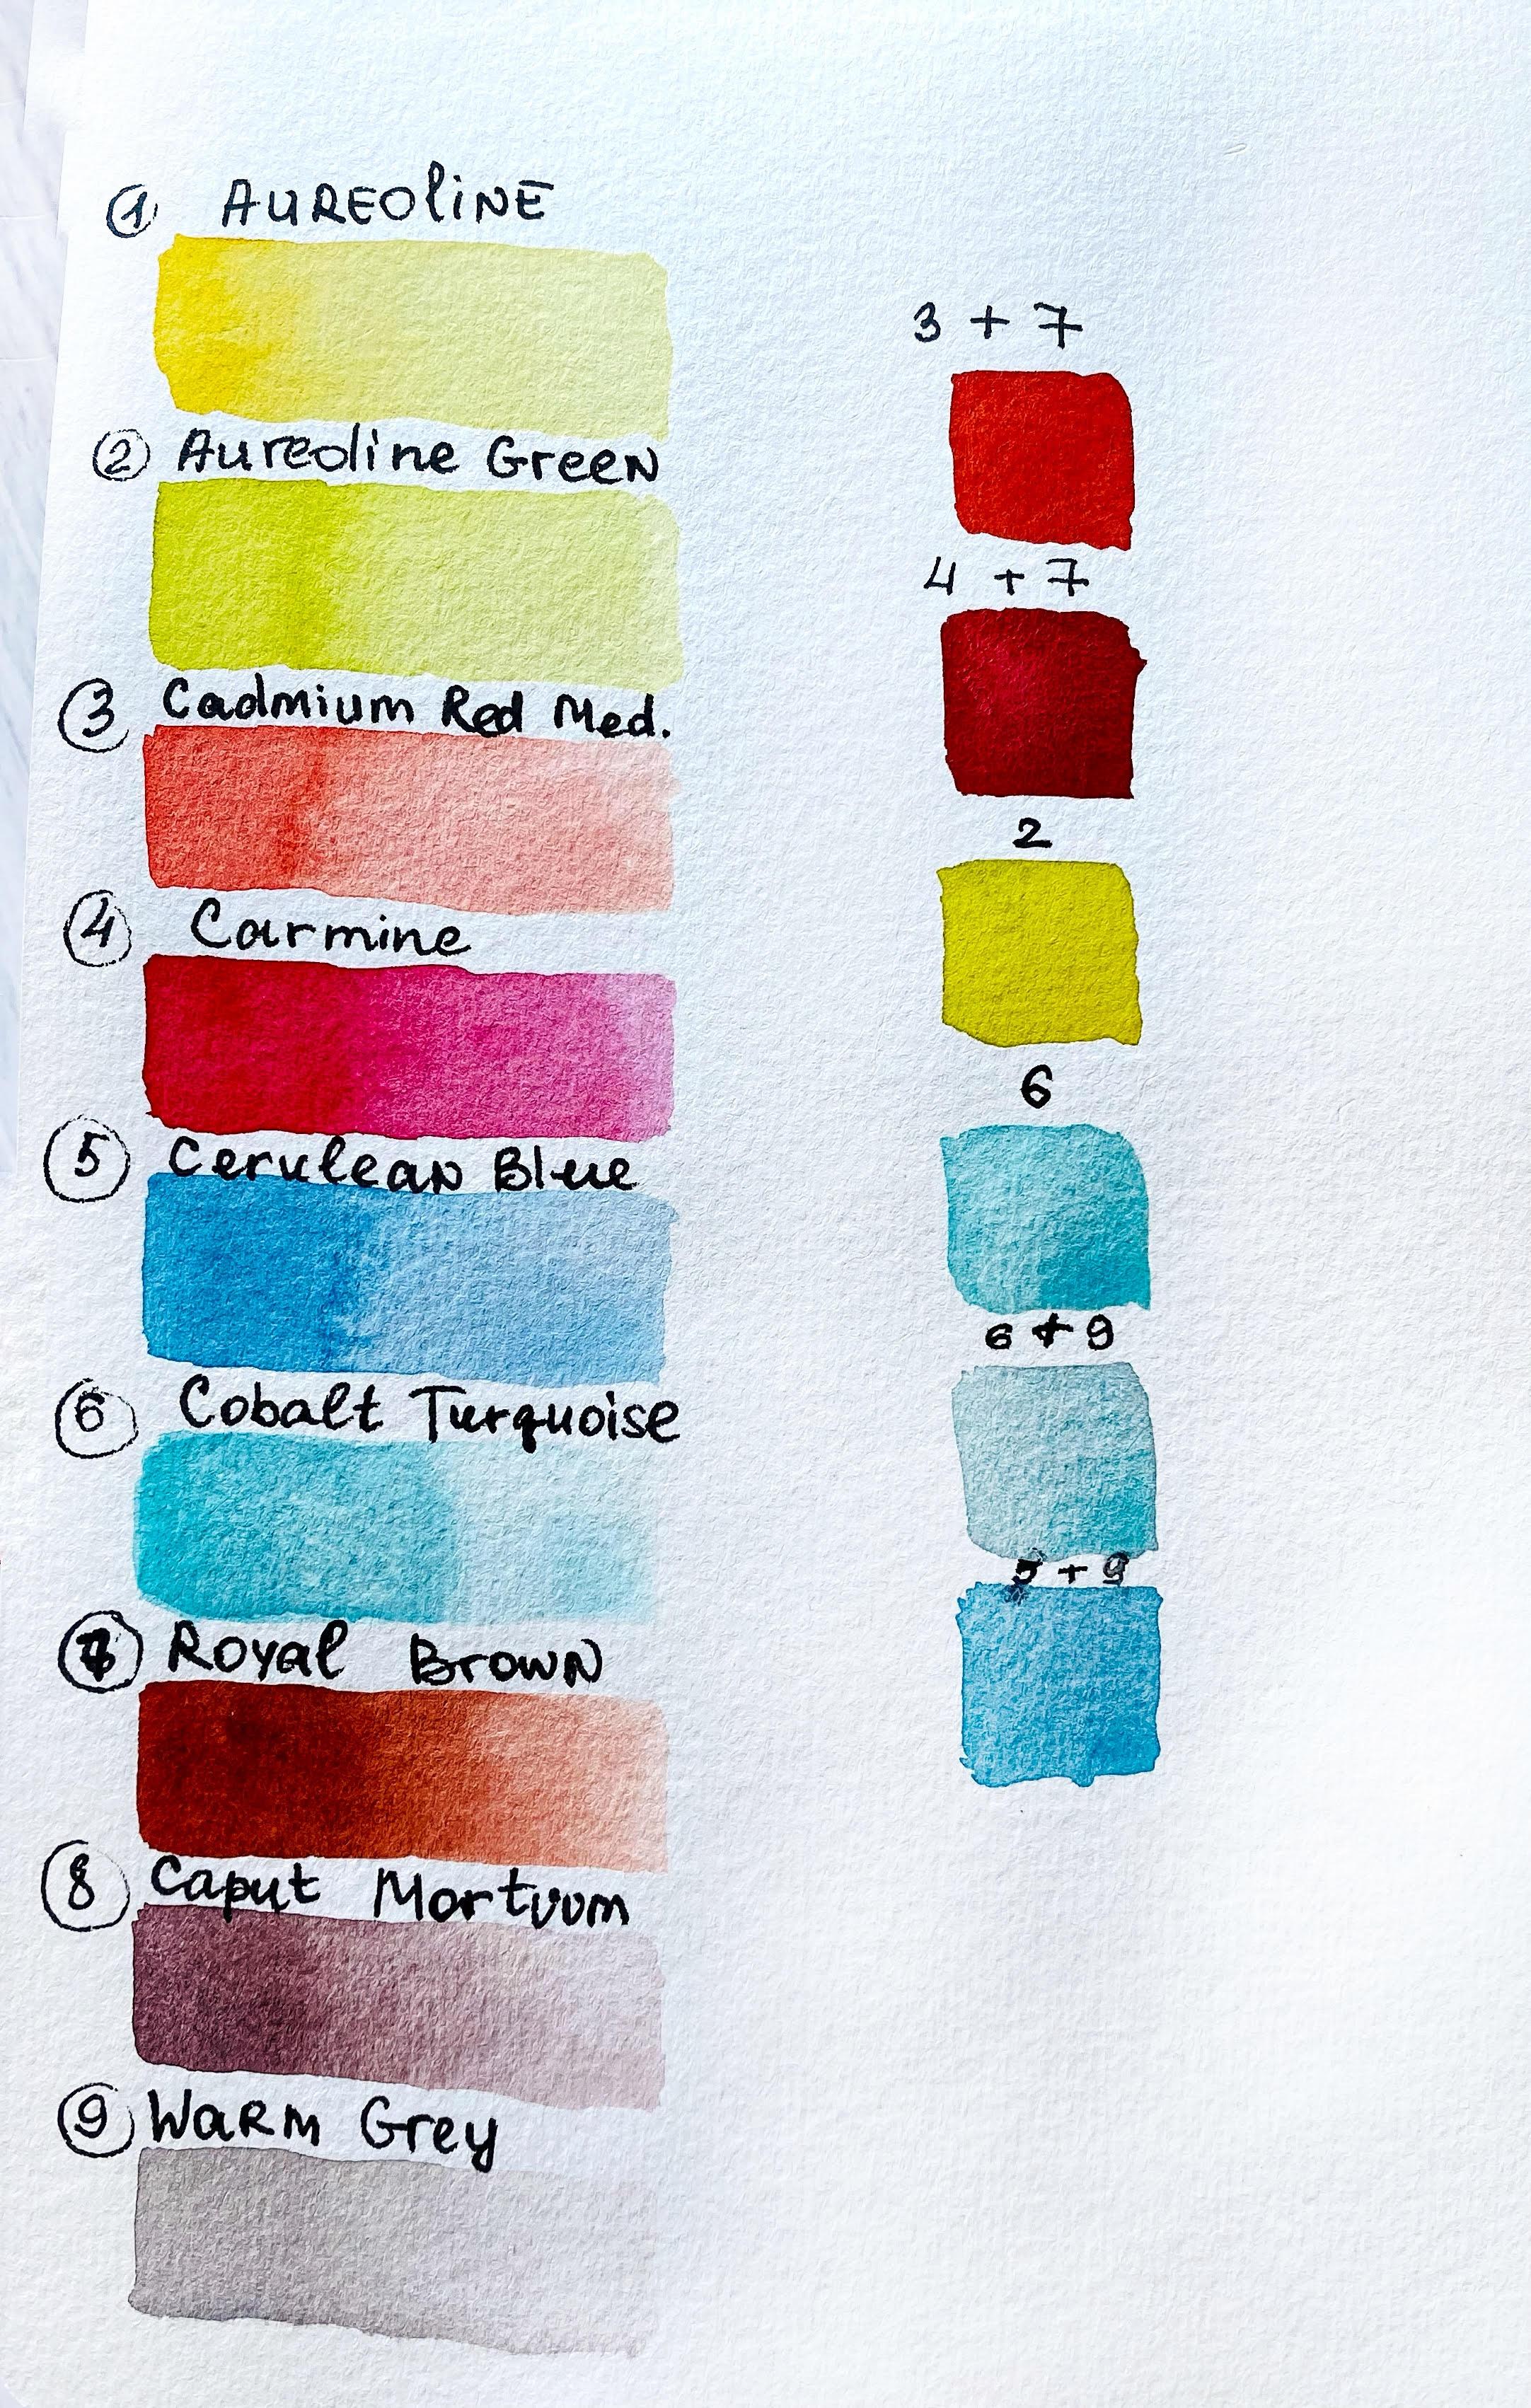 1 AUREOliNE
2 Aureoline GreeN
3 Cadmium Red Med.
4 Carmine
5 CeruleaN Blue
6 Cobalt Turquoise
7 Royal BrowN
8 Caput Mortuum
9 WaRM Grey
3 + 7
4 + 7
2
6
6 + 9
5 + 9